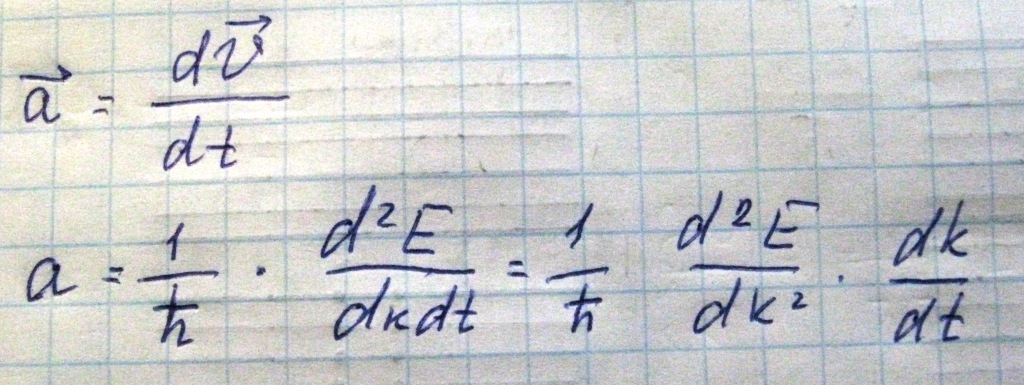 $\vec{a} = \frac{d\vec{v}}{dt}$
$a = \frac{1}{\hbar} \cdot \frac{d^2E}{dkdt} = \frac{1}{\hbar} \frac{d^2E}{dk^2} \cdot \frac{dk}{dt}$